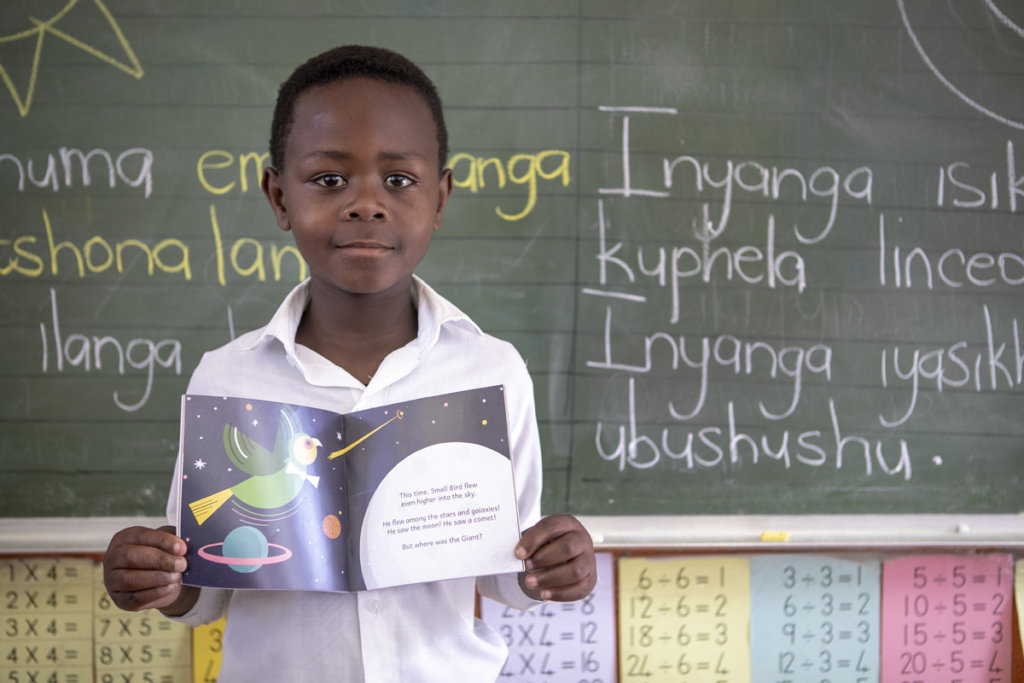 numa em anga
shona lan
ilanga
Inyanga isik
kuphela linceo
Inyanga iyasikh
ubushushu.
This time, Small Bird flew
even higher into the sky.
He flew among the stars and galaxies!
He saw the moon! He saw a comet!
But where was the Giant?
1 X 4 =
2 X 4 =
3 X 4 =
4 X 4 =
6
7 X 5 =
8 X 5 =
9 X 5 =
3
2 X 4 = 8
3 X 4 = 12
4 X 4 = 16
6 ÷ 6 = 1
12 ÷ 6 = 2
18 ÷ 6 = 3
24 ÷ 6 = 4
3 ÷ 3 = 1
6 ÷ 3 = 2
9 ÷ 3 = 3
12 ÷ 3 = 4
5 ÷ 5 = 1
10 ÷ 5 = 2
15 ÷ 5 = 3
20 ÷ 5 = 4